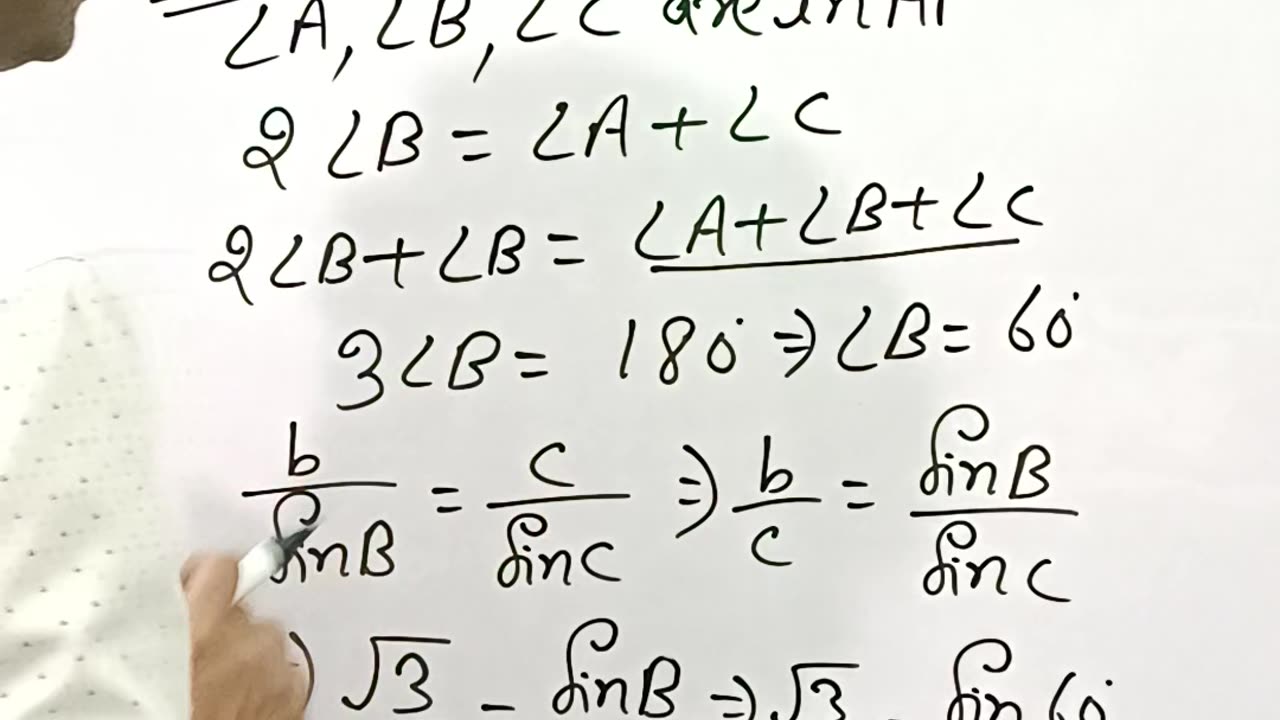 ∠A, ∠B, ∠C are in AP
2∠B = ∠A + ∠C
2∠B + ∠B = ∠A + ∠B + ∠C
3∠B = 180° ⇒ ∠B = 60°
b/sinB = c/sinC ⇒ b/c = sinB/sinC
√3 = sinB ⇒ √3 = sin60°